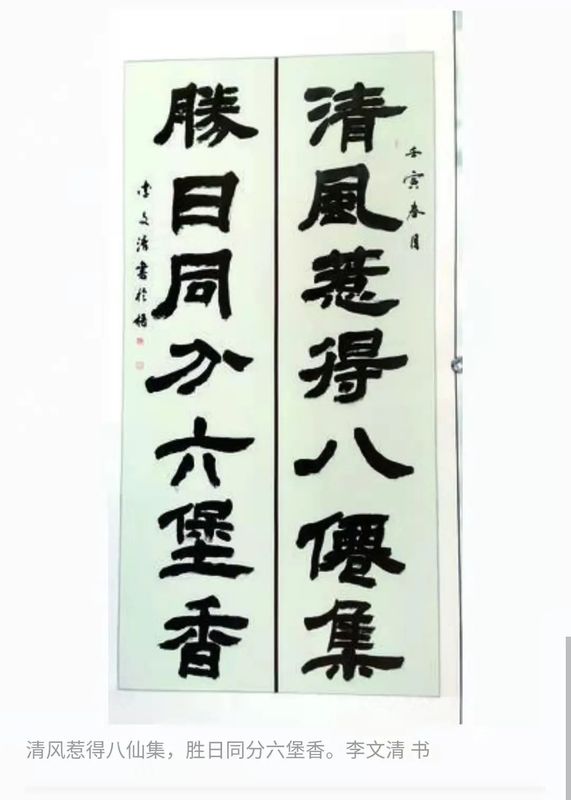 壬寅春月
清風惹得八僊集
勝日同分六堡香
李文清書於梧
清风惹得八仙集，胜日同分六堡香。李文清 书